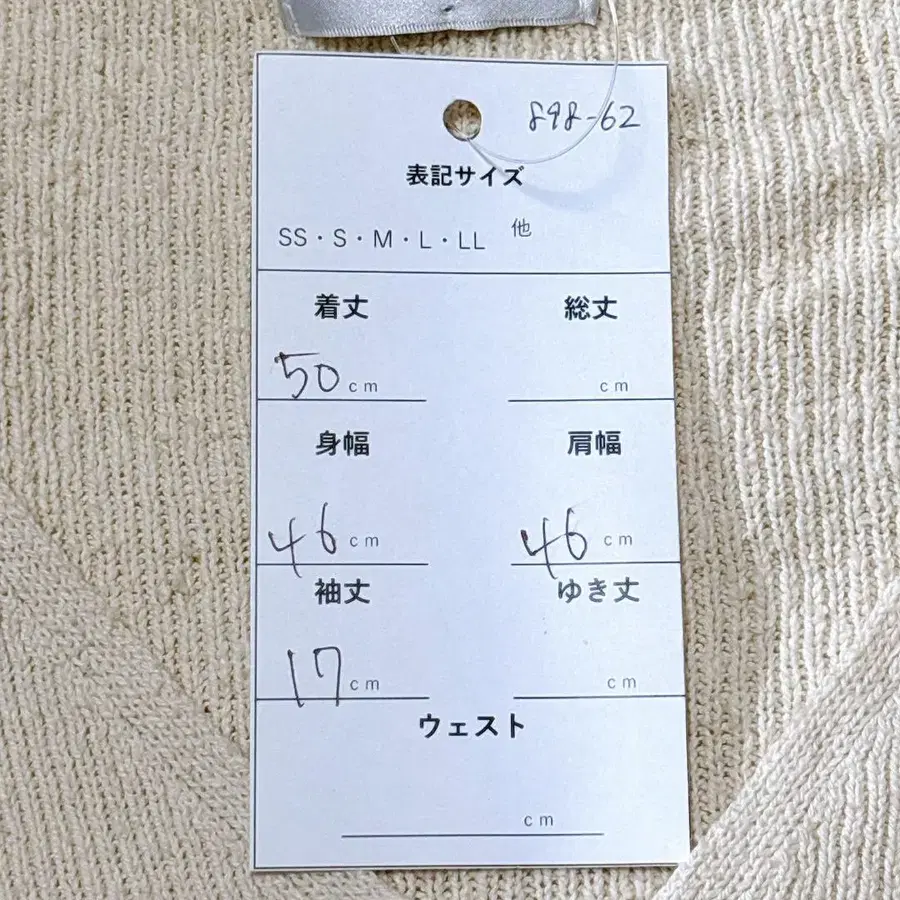 898-62
表記サイズ
SS・S・M・L・LL 他
着丈 総丈
50cm cm
身幅 肩幅
46cm 46cm
袖丈 ゆき丈
17cm cm
ウェスト
cm